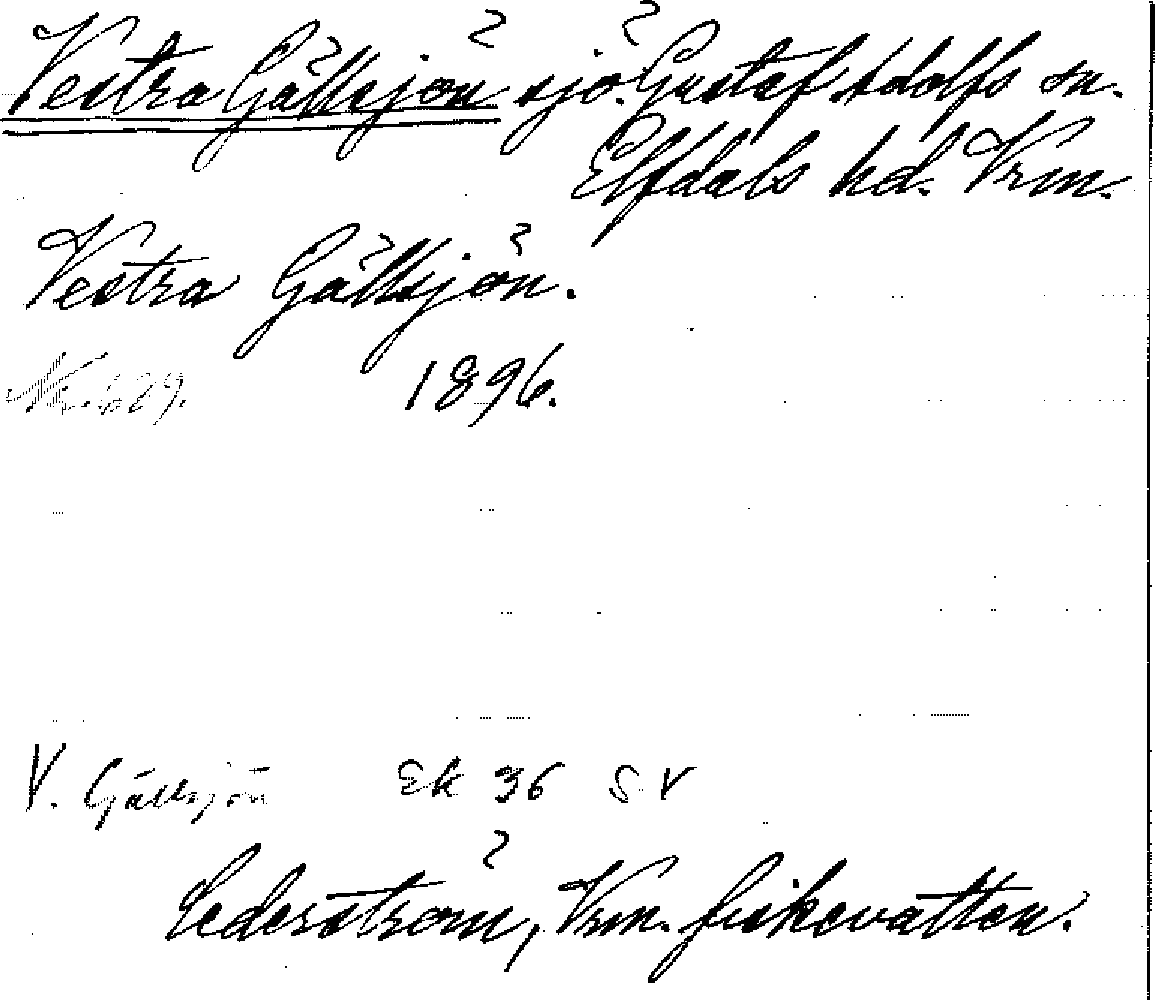 Vestra Gällsjön sjö. Gustaf Adolfs sn.
Elfdals hd. Vrm.
Vestra Gällsjön.
No. 629. 1896.
V. Gällsjön Ek 36 S V
Cederström, Vrm. fiskevatten.